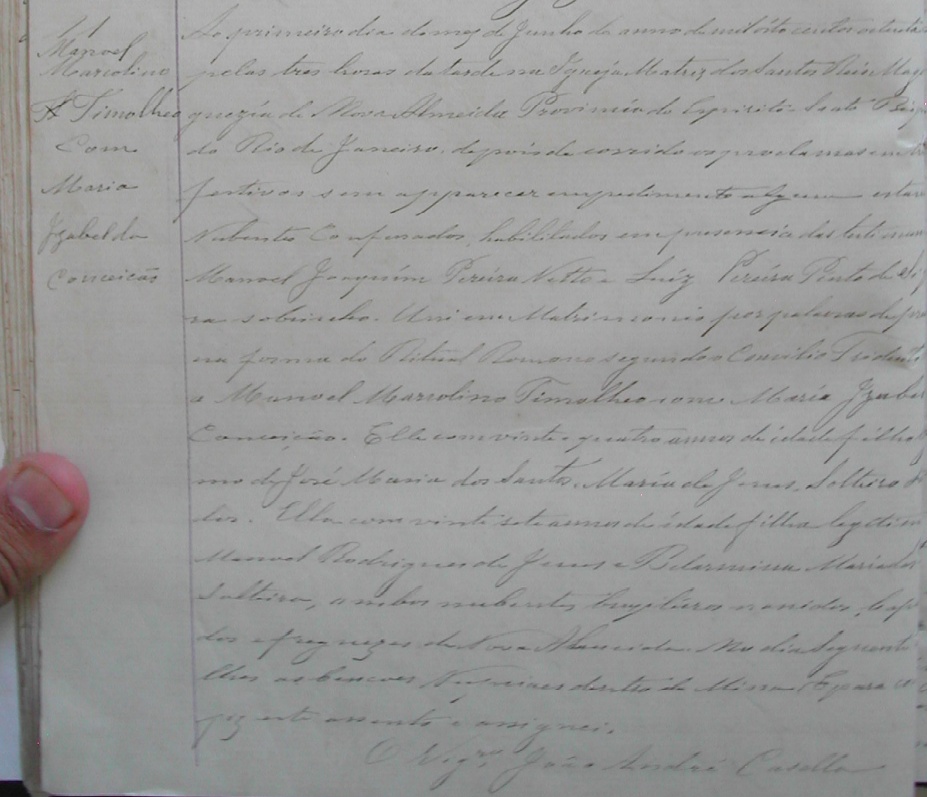 Manoel
Marcolino
Timotheo
Com
Maria
Izabel da
Conceicão
Ao primeiro dia do mez de Junho do anno de mil oito centos oitenta
pelas tres horas da tarde na Igreja Matriz dos Santos Reis Mag
guezia de Nova Almeida Provincia do Espirito Santo
do Rio de Janeiro, depois de corrido os proclamas em
festivos sem apparecer impedimento algum
Nubentes Confessados, habilitados em presencia das
Manoel Joaquim Pereira Netto e Luiz Pereira Pinto de Si
ra sobrinho. Uni em Matrimonio por palavras de
na forma do Ritual Romano segundo o Concilio
a Manoel Marcolino Timotheo com Maria Izabel
Conceição. Elle com vinte e quatro annos de idade filho
mo de José Maria dos Santos, Maria de Jesus, Solteiro
dos. Ella com vinte sete annos de idade filha legitim
Manoel Rodrigues de Jesus e Belarmina Maria dos
Solteira, ambos nubentes brazileiros
dos e freguezes de Nova Almeida. No dia Seguenti
lhes as bencoes Nupciaes dentro da Missa
fiz este assento e assignei.
O Vigrº João André Casella